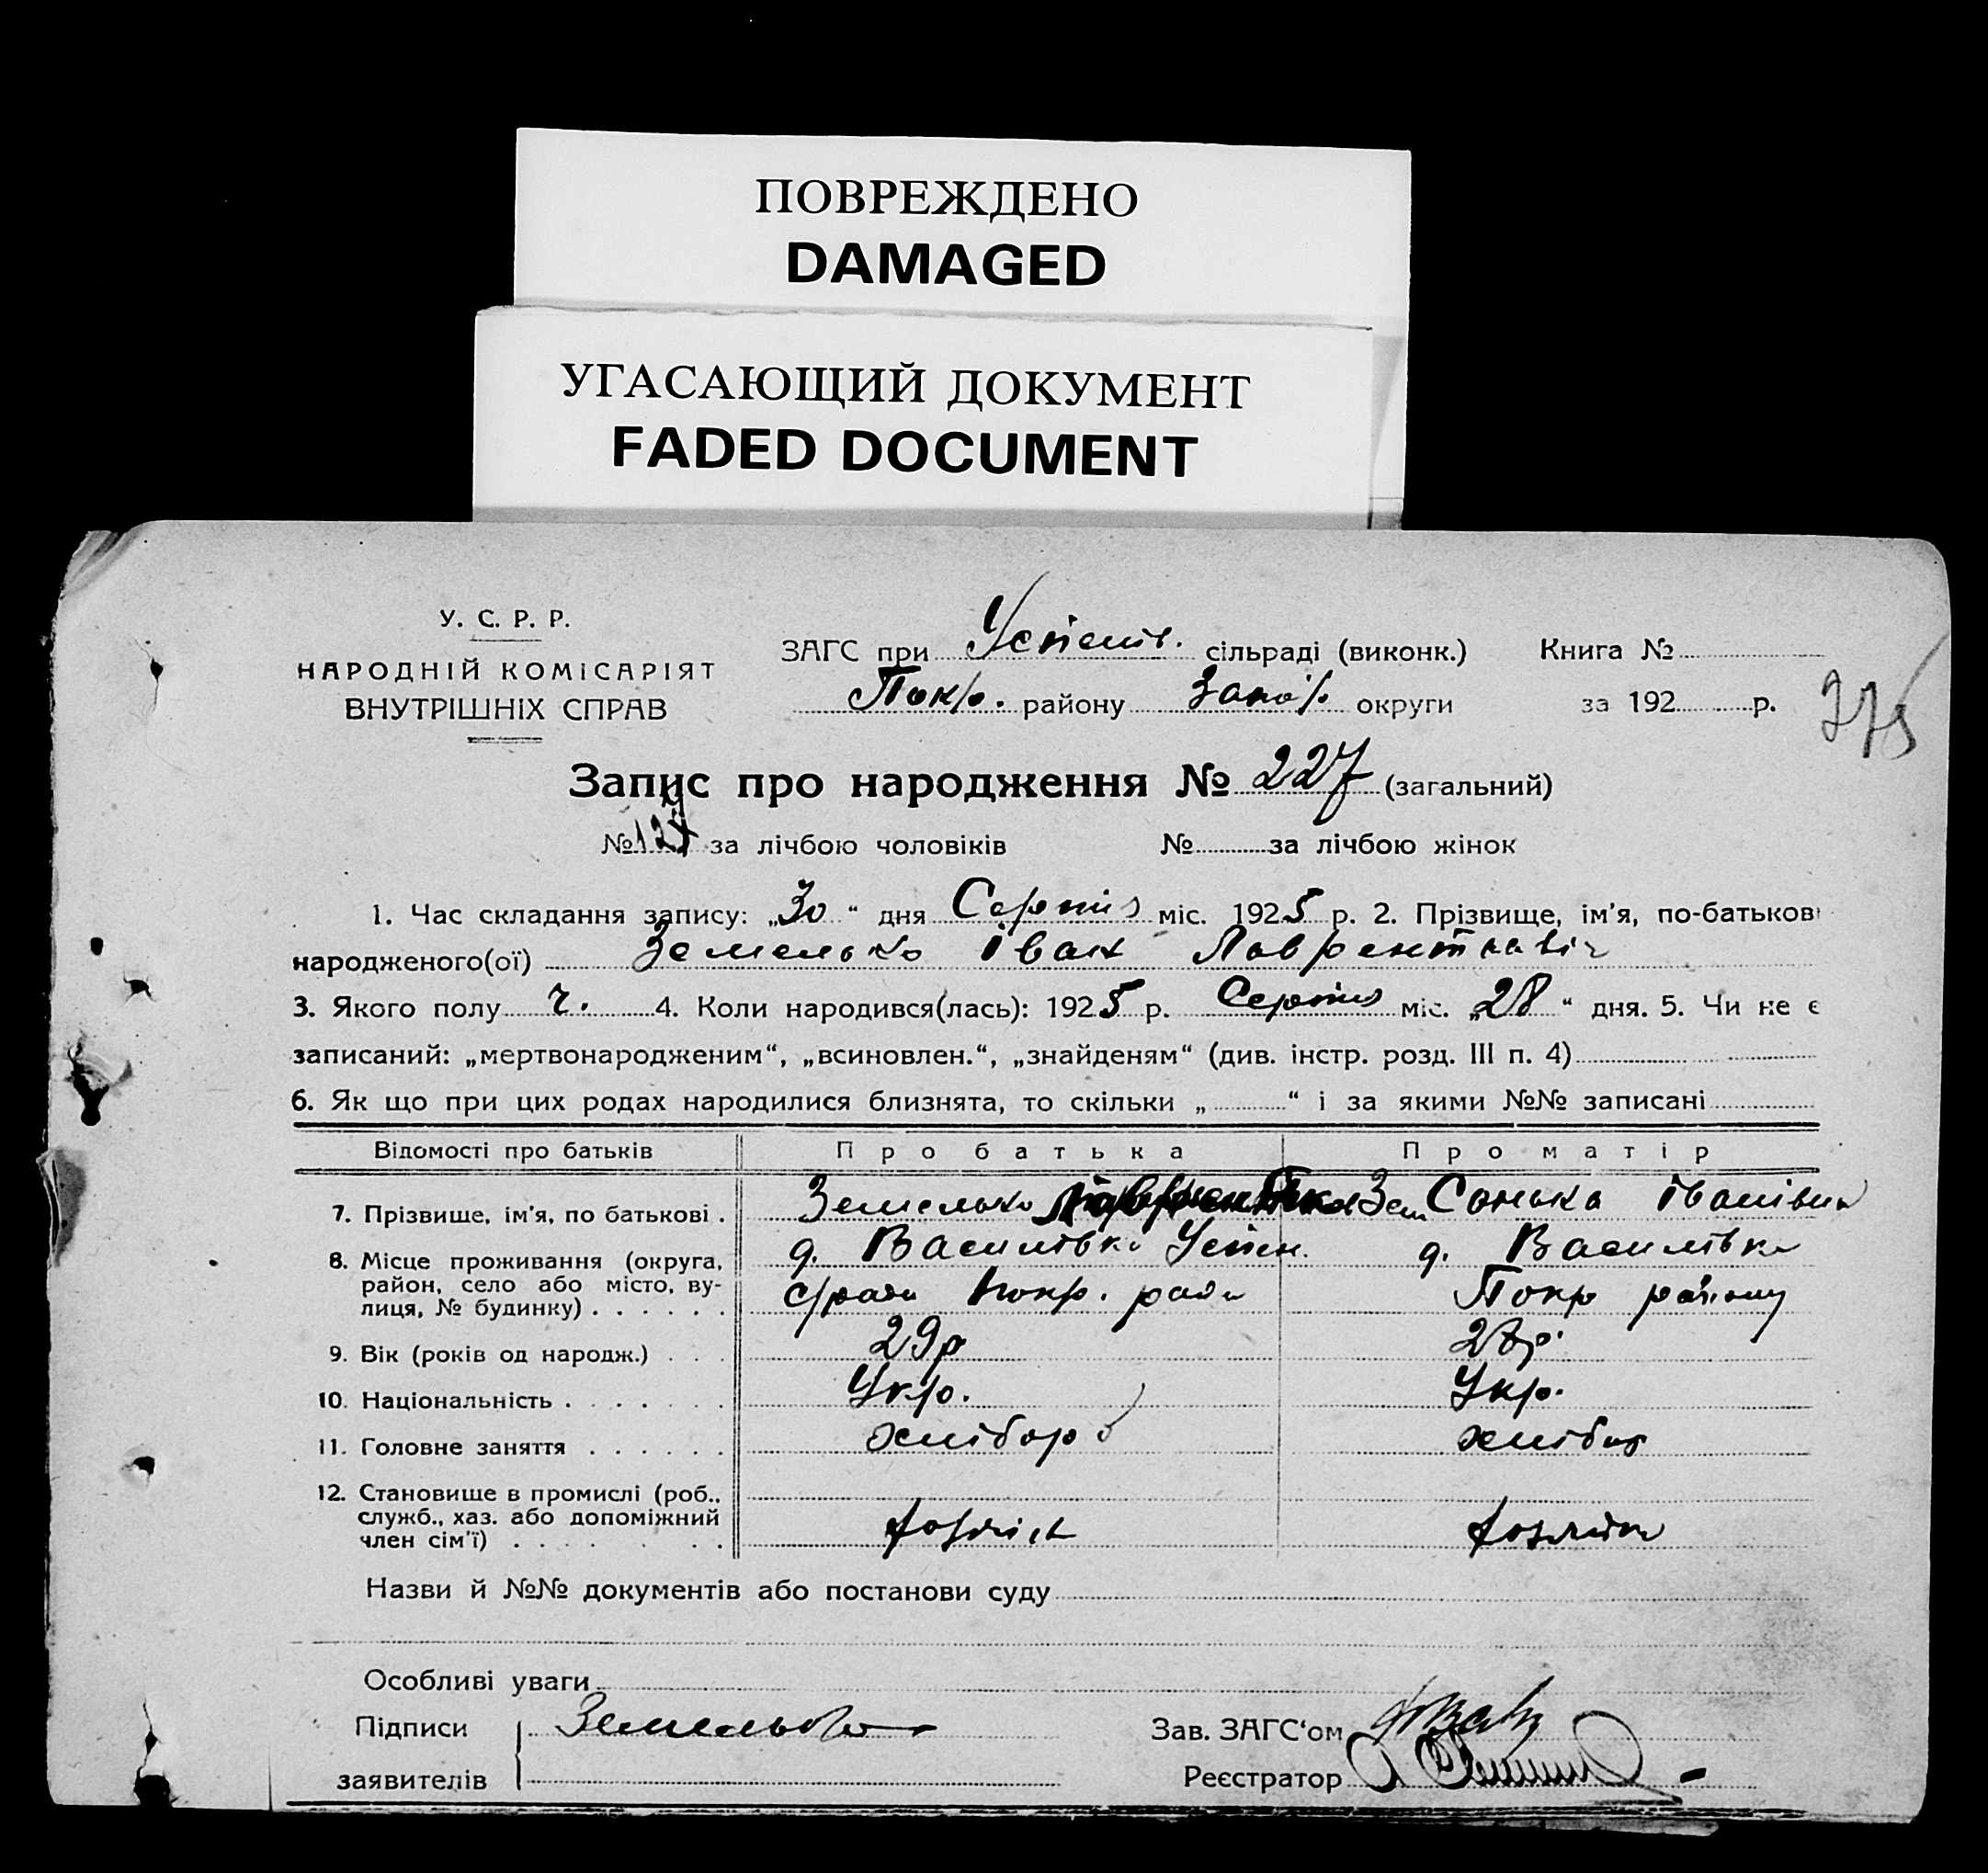 ПОВРЕЖДЕНО
DAMAGED
УГАСАЮЩИЙ ДОКУМЕНТ
FADED DOCUMENT
У. С. Р. Р.
НАРОДНІЙ КОМІСАРІЯТ
ВНУТРІШНІХ СПРАВ
ЗАГС при Успенів. сільраді (виконк.) Книга №
Покр. району Запор округи за 192 р.
Запис про народження № 227 (загальний)
№ 127 за лічбою чоловіків № за лічбою жінок
1. Час складання запису: „30“ дня Серпня міс. 1925 р. 2. Прізвище, ім'я, по-батькові
народженого(ої) Земелько Іван
3. Якого полу ч. 4. Коли народився(лась): 1925 р. Серпня міс. „28“ дня. 5. Чи не є
записаний: „мертвонародженим“, „всиновлен.“, „знайденям“ (див. інстр. розд. III п. 4)
6. Як що при цих родах народилися близнята, то скільки „ “ і за якими №№ записані
Відомості про батьків Про батька Про матір
7. Прізвище, ім'я, по батькові . Земелько Зем Сонька Іванівна
8. Місце проживання (округа, д. Василівка Успен. д. Василівка
район, село або місто, ву-
лиця, № будинку) . . . . . . с/ради Покр. Покр району
9. Вік (років од народж.) . . . 29р 28р.
10. Національність . . . . . . . Укр. Укр.
11. Головне заняття . . . . . . хлібороб хлібор
12. Становище в промислі (роб.,
служб., хаз. або допоміжний
член сім'ї) . . . . . . .
Назви й №№ документів або постанови суду
Особливі уваги
Підписи Земелько Зав. ЗАГС'ом
заявителів Реєстратор